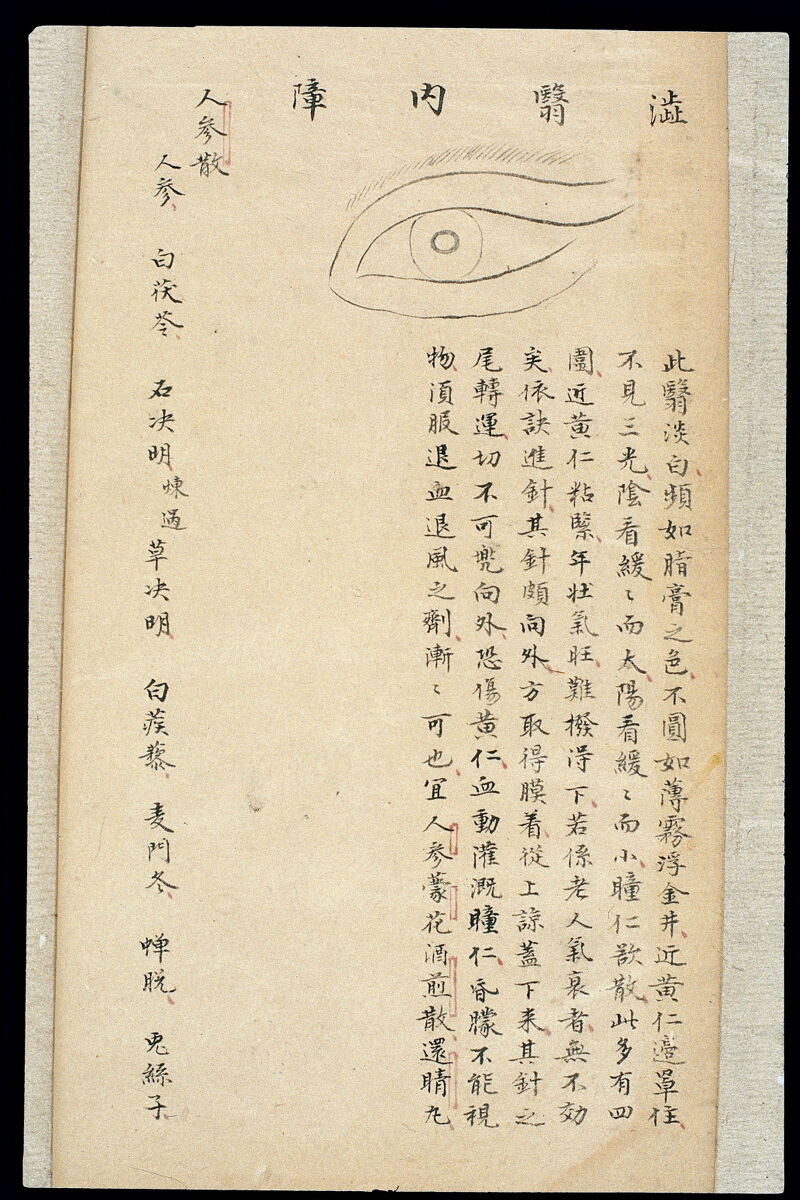 澁翳內障
此翳淡白頻如脂膏之色不圓如薄霧浮金井近黃仁邉罩住
不見三光陰看緩〻而太陽看緩〻而小瞳仁欲散此多有四
圍近黃仁粘緊年壯氣旺難撥得下若係老人氣衰者無不効
矣依訣進針其針頗向外方取得膜着從上諒蓋下来其針之
尾轉運切不可兠向外恐傷黃仁血動灌溉瞳仁昏矇不能視
物湏服退血退風之劑漸〻可也宜人參蒙花酒煎散還睛丸
人參散
人參 白茯苓 石决明煉過 草决明 白蒺藜 麦門冬 蝉脫 兎絲子